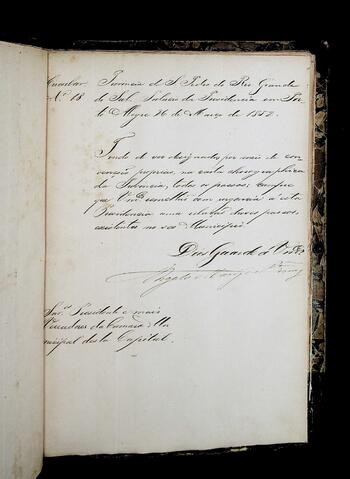 Circular Provincia de S. Pedro do Rio Grande
N.º 18 do Sul. Palacio da Presidencia em Por-
to Alegre 16 de Março de 1858.
Tendo de ser designados por meio de con-
venções proprias, na carta chorographica
da Provincia, todos os passos; cumpre
que V.mces remettão com urgencia a esta
Presidencia uma relação desses passos,
existentes no seu Municipio.
Deos Guarde a V.mces
Snr.es Presidente e mais
Vereadores da Camara Mu-
nicipal desta Capital.